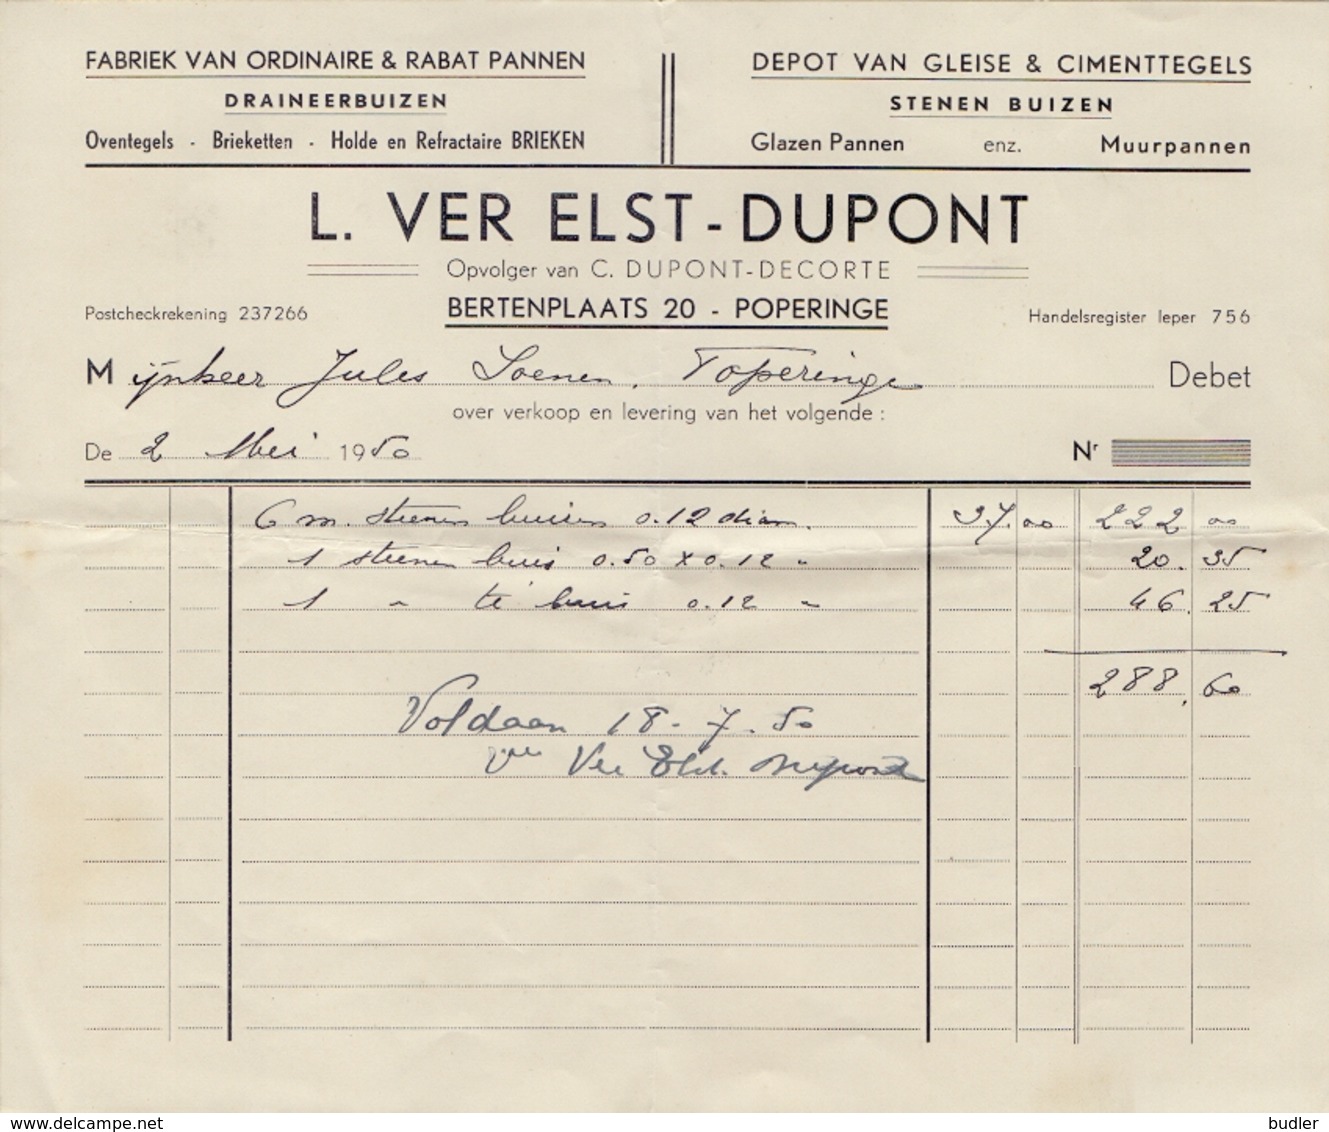 FABRIEK VAN ORDINAIRE & RABAT PANNEN
DRAINEERBUIZEN
Oventegels - Brieketten - Holde en Refractaire BRIEKEN
DEPOT VAN GLEISE & CIMENTTEGELS
STENEN BUIZEN
Glazen Pannen enz. Muurpannen
L. VER ELST - DUPONT
Opvolger van C. DUPONT-DECORTE
Postcheckrekening 237266
BERTENPLAATS 20 - POPERINGE
Handelsregister Ieper 756
Mijnheer Jules Soenen, Poperinge Debet
over verkoop en levering van het volgende :
De 2 Mei 1950 Nr
6 m. steenen buizen 0.12 diam. 37.00 222 00
1 steenen buis 0.50 x 0.12 " 20.35
1 " té buis 0.12 " 46.25
288.60
Voldaan 18-7.50
Ver Elst. Dupont
www.delcampe.net
budler